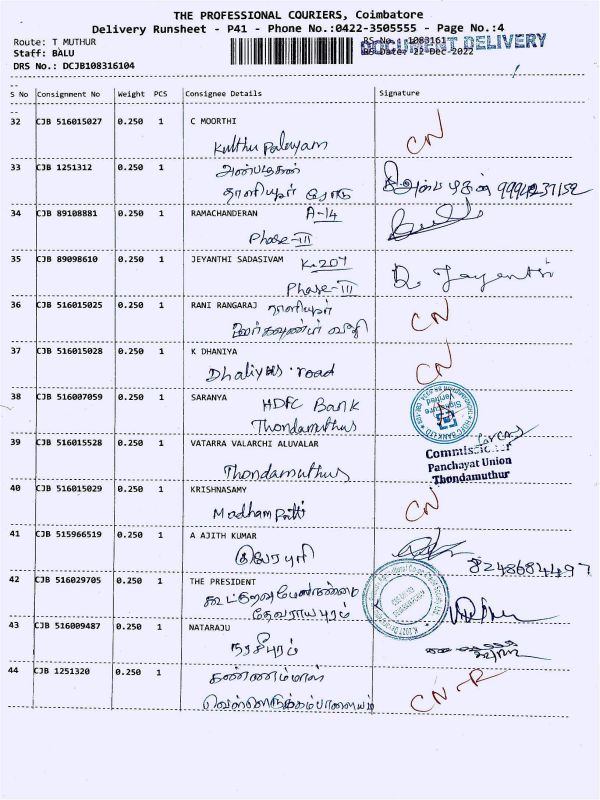 THE PROFESSIONAL COURIERS, Coimbatore
Delivery Runsheet - P41 - Phone No.:0422-3505555 - Page No.:4
Route: T MUTHUR
Staff: BALU
DRS No.: DCJB108316104
RS No. 1083161
DOCUMENT DELIVERY
RS Date: 22-Dec-2022
S No Consignment No Weight PCS Consignee Details Signature
32 CJB 516015027 0.250 1 C MOORTHI CN
Kulthupalayam
33 CJB 1251312 0.250 1 அன்பழகன்
தாளியூர் ரோடு 9994237152
34 CJB 89108881 0.250 1 RAMACHANDERAN A-14
Phase-III
35 CJB 89098610 0.250 1 JEYANTHI SADASIVAM K-207
Phase-III
36 CJB 516015025 0.250 1 RANI RANGARAJ தாளியூர் CN
37 CJB 516015028 0.250 1 K DHANIYA CN
Dhaliyur road
38 CJB 516007059 0.250 1 SARANYA HDFC Bank
Thondamuthur
Signature Verified
39 CJB 516015528 0.250 1 VATARRA VALARCHI ALUVALAR
Thondamuthur
Commissioner
Panchayat Union
Thondamuthur
40 CJB 516015029 0.250 1 KRISHNASAMY CN
Madhampatti
41 CJB 515966519 0.250 1 A AJITH KUMAR
8248684497
42 CJB 516029705 0.250 1 THE PRESIDENT
தேவராயபுரம்
43 CJB 516009487 0.250 1 NATARAJU
நரசீபுரம்
44 CJB 1251320 0.250 1 கண்ணம்மாள் CN-R